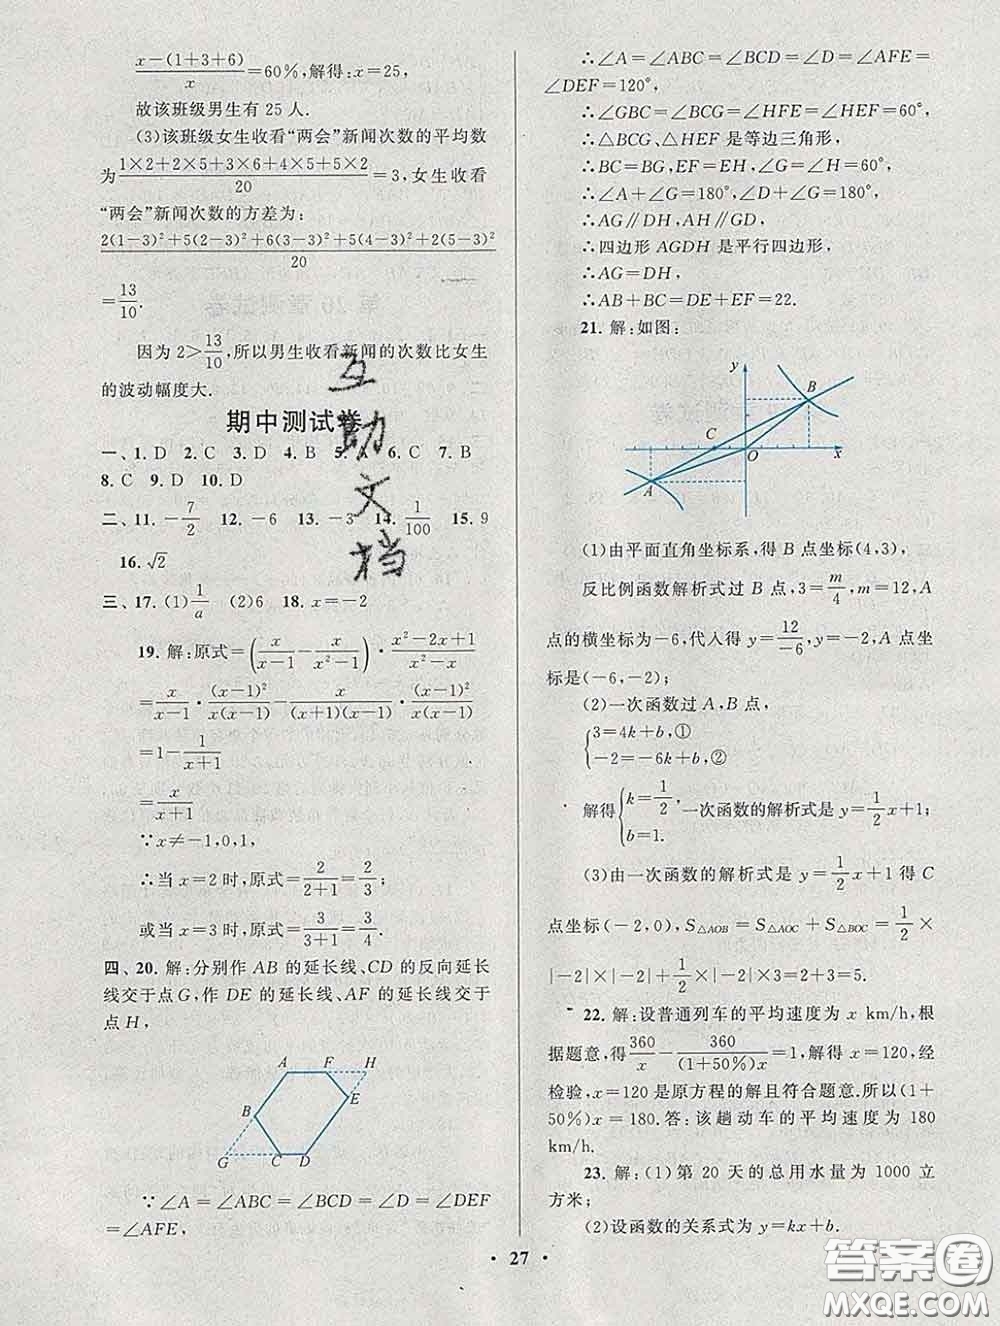 x-(1+3+6)/x=60%,解得:x=25,
故该班级男生有 25 人.
(3)该班级女生收看“两会”新闻次数的平均数
为(1×2+2×5+3×6+4×5+5×2)/20=3,女生收看
“两会”新闻次数的方差为:
(2(1-3)²+5(2-3)²+6(3-3)²+5(4-3)²+2(5-3)²)/20
=13/10.
因为 2>13/10,所以男生收看新闻的次数比女生
的波动幅度大.
期中测试卷
一、1. D 2. C 3. D 4. B 5. 6. C 7. B
8. C 9. D 10. D
二、11. -7/2 12. -6 13. -3 14. 1/100 15. 9
16. √2
三、17. (1)1/a (2)6 18. x=-2
19. 解:原式=(x/(x-1)-x/(x²-1))·(x²-2x+1)/(x²-x)
=x/(x-1)·(x-1)²/(x(x-1))-x/((x+1)(x-1))·(x-1)²/(x(x-1))
=1-1/(x+1)
=x/(x+1)
∵x≠-1,0,1,
∴当 x=2 时,原式=2/(2+1)=2/3;
或当 x=3 时,原式=3/(3+1)=3/4.
四、20. 解:分别作 AB 的延长线、CD 的反向延长
线交于点G,作 DE 的延长线、AF 的延长线交于
点 H,
A F H
E
B
G C D
∵∠A=∠ABC=∠BCD=∠D=∠DEF
=∠AFE,
∴∠A=∠ABC=∠BCD=∠D=∠AFE=
∠DEF=120°,
∴∠GBC=∠BCG=∠HFE=∠HEF=60°,
∴△BCG、△HEF 是等边三角形,
∴BC=BG,EF=EH,∠G=∠H=60°,
∴∠A+∠G=180°,∠D+∠G=180°,
∴AG∥DH,AH∥GD,
∴四边形 AGDH 是平行四边形,
∴AG=DH,
∴AB+BC=DE+EF=22.
21. 解:如图:
y
B
C
O x
A
(1)由平面直角坐标系,得 B 点坐标(4,3),
反比例函数解析式过 B 点,3=m/4,m=12,A
点的横坐标为-6,代入得 y=12/-6,y=-2,A 点坐
标是(-6,-2);
(2)一次函数过 A,B 点,
{3=4k+b,①
-2=-6k+b,②
解得{k=1/2, b=1. 一次函数的解析式是 y=1/2x+1;
(3)由一次函数的解析式是 y=1/2x+1 得 C
点坐标(-2,0),S△AOB=S△AOC+S△BOC=1/2×
|-2|×|-2|+1/2×|-2|×3=2+3=5.
22. 解:设普通列车的平均速度为 x km/h,根
据题意,得360/x-360/((1+50%)x)=1,解得 x=120,经
检验,x=120 是原方程的解且符合题意.所以(1+
50%)x=180. 答:该趟动车的平均速度为 180
km/h.
23. 解:(1)第 20 天的总用水量为 1000 立
方米;
(2)设函数的关系式为 y=kx+b.
• 27 •
互助文档
答案圈
MXQE.COM